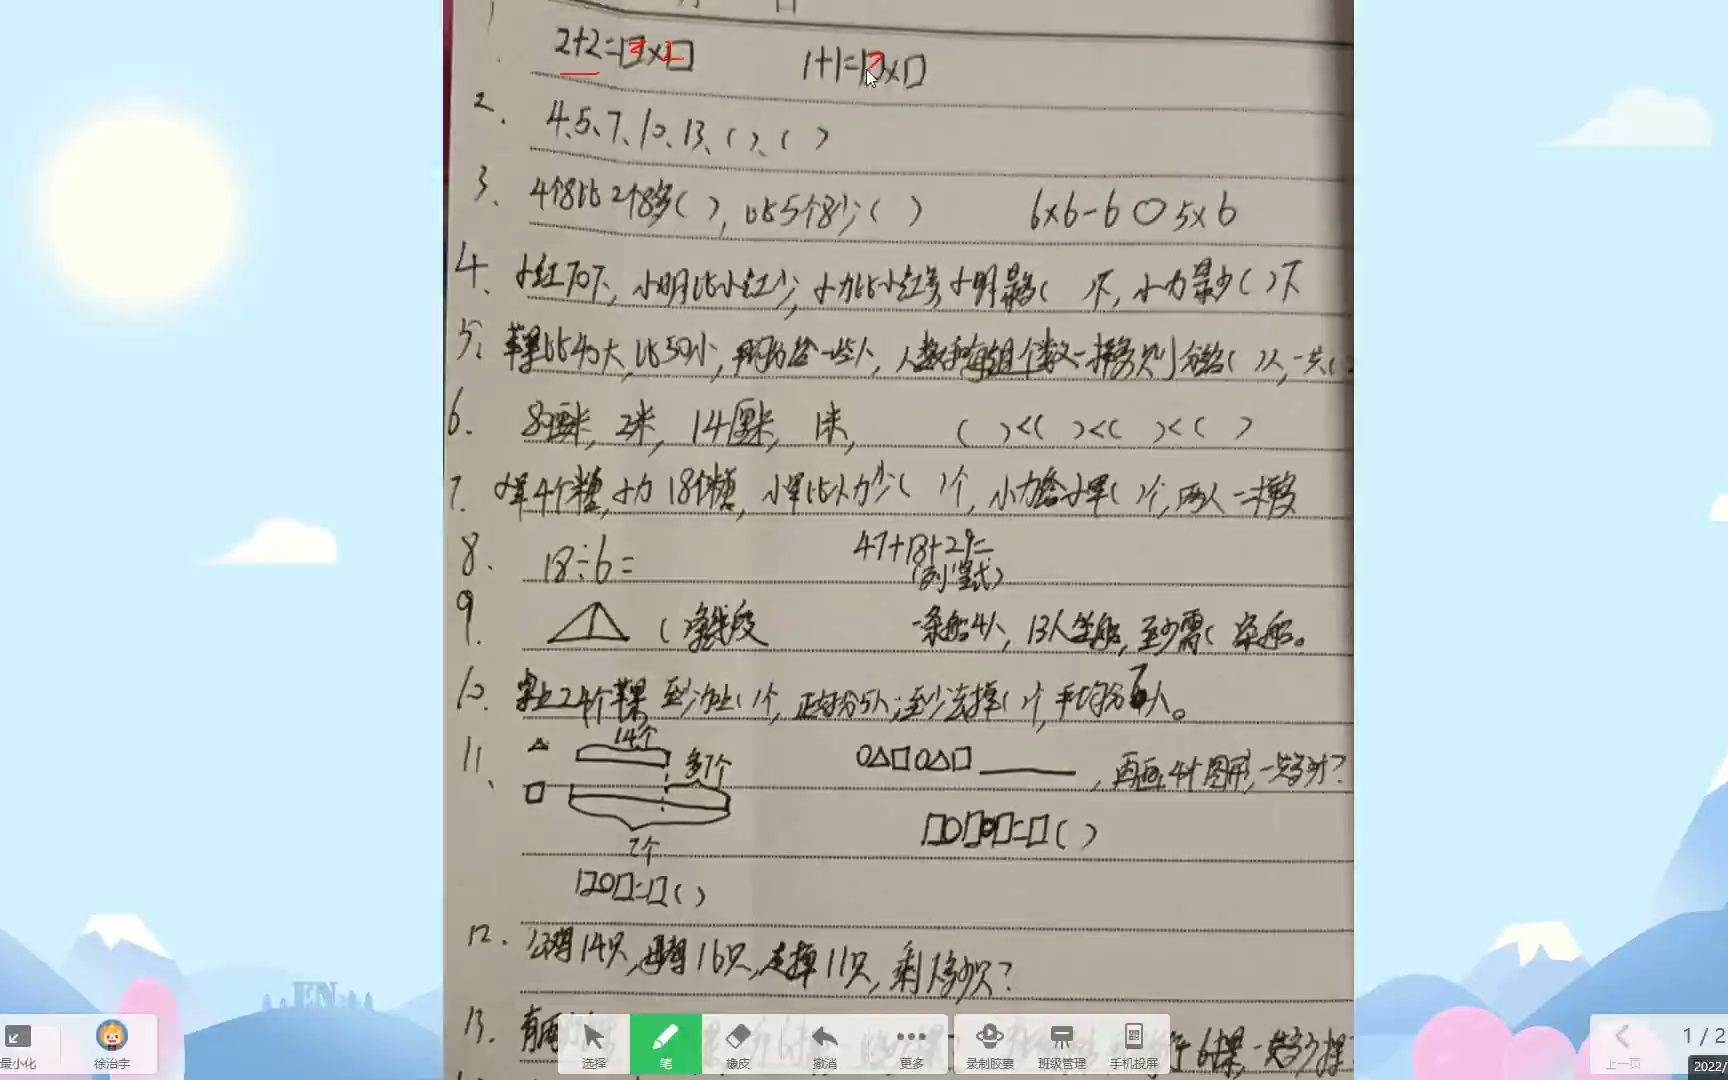 2+2=□×□ 1+1=□×□
2、 4、5、7、10、13、( )、( )
3、 4个8比2个8多( ), 比5个8少( ) 6×6-6○5×6
4、 小红70下, 小明比小红少, 小力比小红多 小明最多( )下, 小力最少( )下
5、 苹果比40大, 比50小, 平均分给一些人, 人数和每组个数一样多 则分给( )人, 一共(
6. 米, 2米, 14厘米, 1米, ( )<( )<( )<( )
7. 小军4个糖, 小力18个糖, 小军比小力少( )个, 小力给小军( )个, 两人一样多
8. 18÷6= 47+18+29=
(列竖式)
9. ( 条线段 一条船4人, 13人坐船, 至少需( 条船。
10. 24个苹果 至少加上( )个, 正好分5人; 至少去掉( )个, 平均分 人。
11、 △ 14个 ○△□○△□ , 再画4个图形, 一共多少个?
□ 多7个
?个
□○□○□=□( )
□○□=□( )
12. 14只, 16只, 走掉11只, 剩多少只?
13. 有 6棵 一共多少棵
最小化 徐治宇 选择 笔 橡皮 撤消 更多 录制胶囊 班级管理 手机投屏 上一页 1/2
2022/